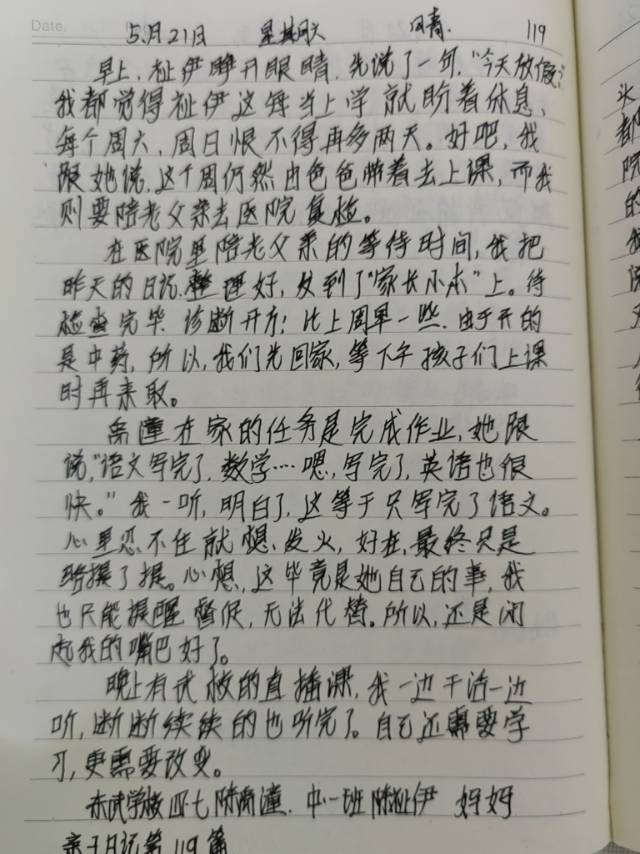 Date.
5月21日 星期天 晴. 119
早上,祉伊睁开眼睛,先说了一句,“今天放假?
我都觉得祉伊这每当上学就盼着休息,
每个周六、周日恨不得再多两天。好吧,我
跟她说,这个周仍然由爸爸带着去上课,而我
则要陪老父亲去医院复检。
在医院里陪老父亲的等待时间,我把
昨天的日记整理好,发到了“家长小本”上。待
检查完毕 诊断开方!比上周早一些.由于开的
是中药,所以,我们先回家,等下午孩子们上课
时再来取。
禹潼在家的任务是完成作业,她跟
说,“语文写完了,数学…嗯,写完了,英语也很
快。”我一听,明白了,这等于只写完了语文。
心里忍不住就想发火,好在,最终只是
略提了提。心想,这毕竟是她自己的事,我
也只能提醒督促,无法代替。所以,还是闭
起我的嘴巴好了。
晚上有武校的直播课,我一边干活一边
听,断断续续的也听完了。自己还需要学
习,更需要改变。
武学校四七陈禹潼.中一班陈祉伊 妈妈
亲子日记第119篇